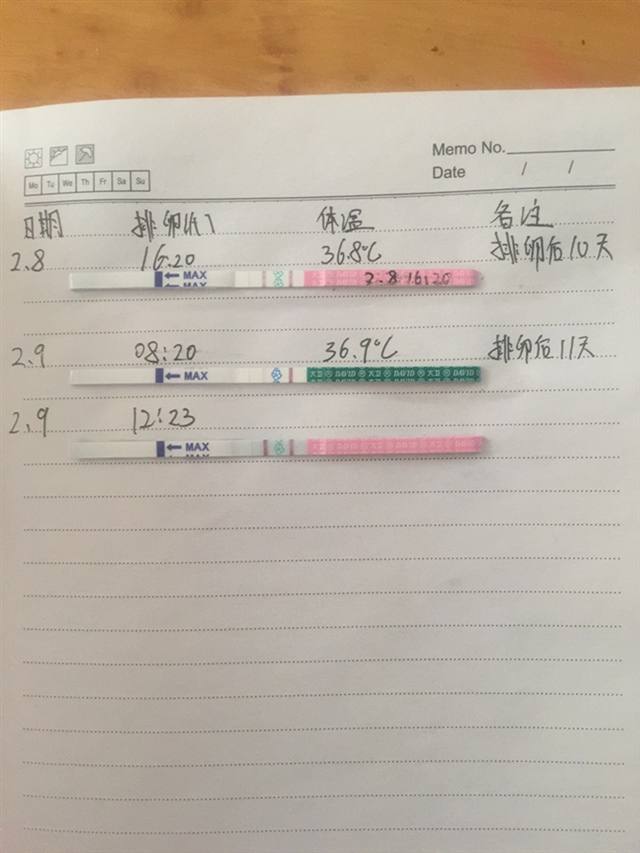 Memo No.
Mo Tu We Th Fr Sa Su
Date / /
日期 排卵(h) 体温 备注
2.8 16:20 36.8℃ 排卵后10天
MAX
MAX
2.8 16:20
2.9 08:20 36.9℃ 排卵后11天
MAX
大卫 DAVID 大卫 DAVID 大卫 DAVID
2.9 12:23
MAX
MAX